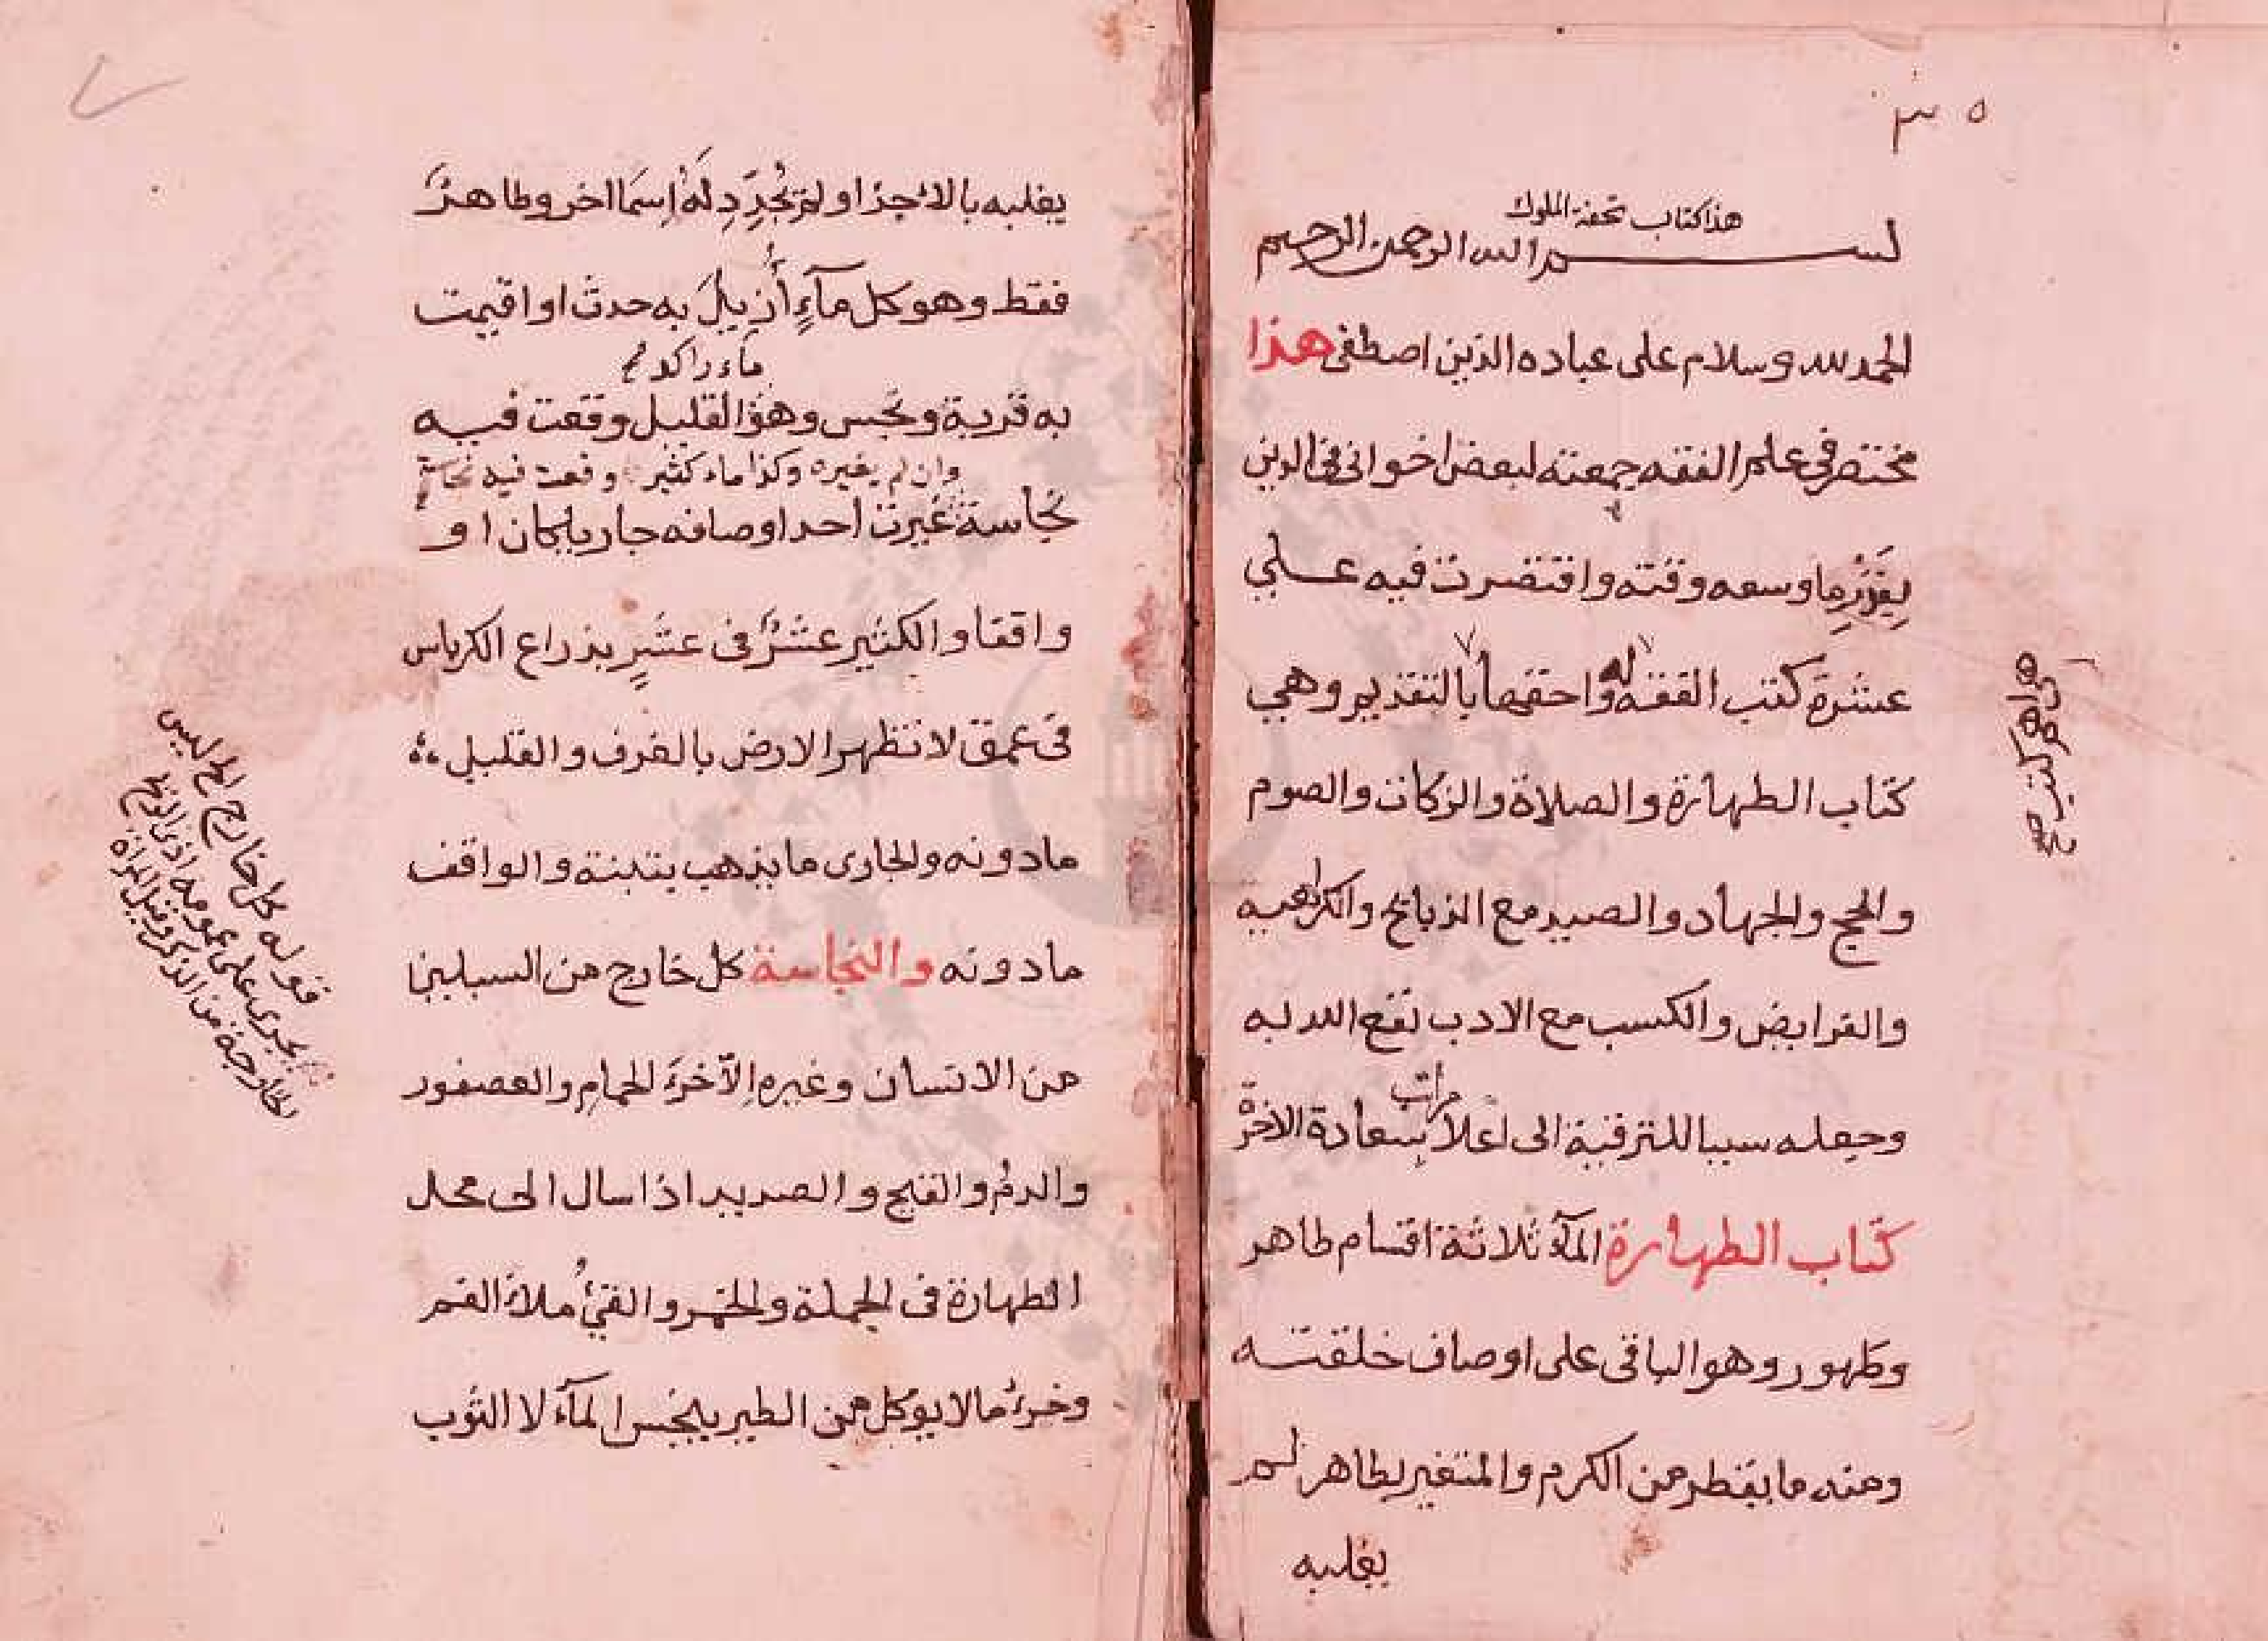 هذا كتاب تحفة الملوك
بسم الله الرحمن الرحيم
الحمد لله وسلام على عباده الذين اصطفى هذا
مختصر في علم الفقه جمعته لبعض اخواني في الدين
بقدر ما وسعه وقته واقتصرت فيه على
عشرة كتب الفقه له واحقها بالتقديم وهي
كتاب الطهارة والصلاة والزكات والصوم
والحج والجهاد والصيد مع الذبايح والكراهيه
والفرايض والكسب مع الادب نفع الله به
وجعله سببا للترقية الى اعلا مراتب سعادة الاخرة
كتاب الطهارة المآء ثلاثة اقسام طاهر
وطهور وهو الباقى على اوصاف خلقته
ومنه ما يقطر من الكرم والمتغير بطاهر لم
يغلبه
هى اهم كتب صح
يغلبه بالاجزا ولم تجدد له اسما اخر وطاهر
فقط وهو كل مآء أزيل به حدث او اقيمت
ماء راكد
به قربة ونجس وهو القليل وقعت فيه
وان لم يغيره وكذا ماء كثير وقعت فيه نجاسة
نجاسة غيرت احد اوصافه جاريا كان او
واقفا والكثير عشر فى عشر بذراع الكرباس
فى عمق لا تظهر الارض بالغرف والقليل
مادونه والجارى ما يذهب بتبنة والواقف
مادونه والنجاسة كل خارج من السبلين
من الانسان وغيره الا خرء الحمام والعصفور
والدم والقيح والصديد اذا سال الى محل
الطهارة فى الجملة والخمر والقئ ملأ الفم
وخرء مالا يوكل من الطير ينجس المآء لا الثوب
قوله كل خارج الخ ليس
يجرى على عمومه اذ الريح
الخارجة من الذكر وقبل المرأة